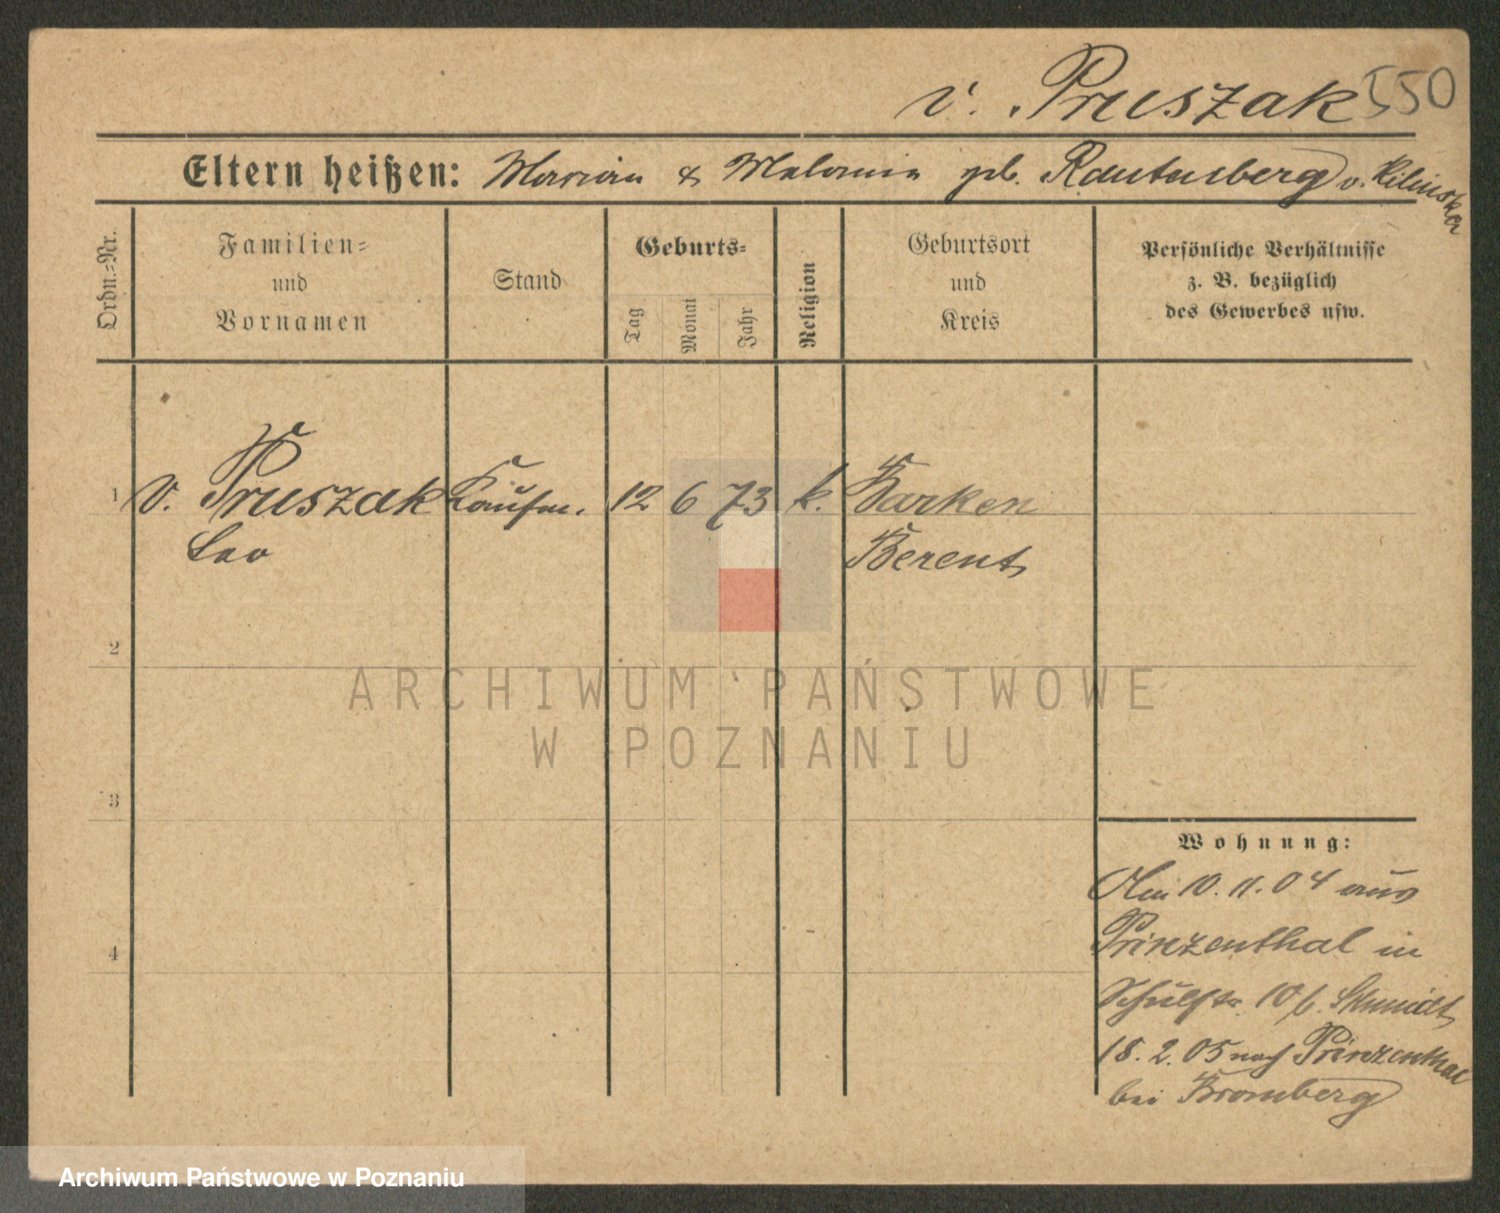 v. Pruszak 550
Eltern heißen: Marian & Melanie geb. Rautenberg v. Kilinska
Ordn.-Nr.
Familien-
und
Vornamen
Stand
Geburts-
Tag
Monat
Jahr
Religion
Geburtsort
und
Kreis
Persönliche Verhältnisse
z. B. bezüglich
des Gewerbes usw.
1 v. Pruszak Kaufm. 12 6 73 k. Barken
Leo Berent
2
ARCHIWUM PAŃSTWOWE
W POZNANIU
3
Wohnung:
Am 10. 11. 04 aus
Prinzenthal in
4
Schulstr. 10 b. Schmidt
18. 2. 05 nach Prinzenthal
bei Bromberg
Archiwum Państwowe w Poznaniu